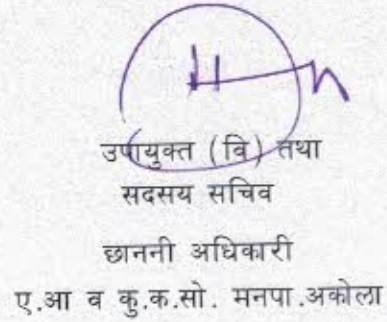 उपायुक्त (वि) तथा
सदसय सचिव
छाननी अधिकारी
ए.आ व कु.क.सो. मनपा.अकोला